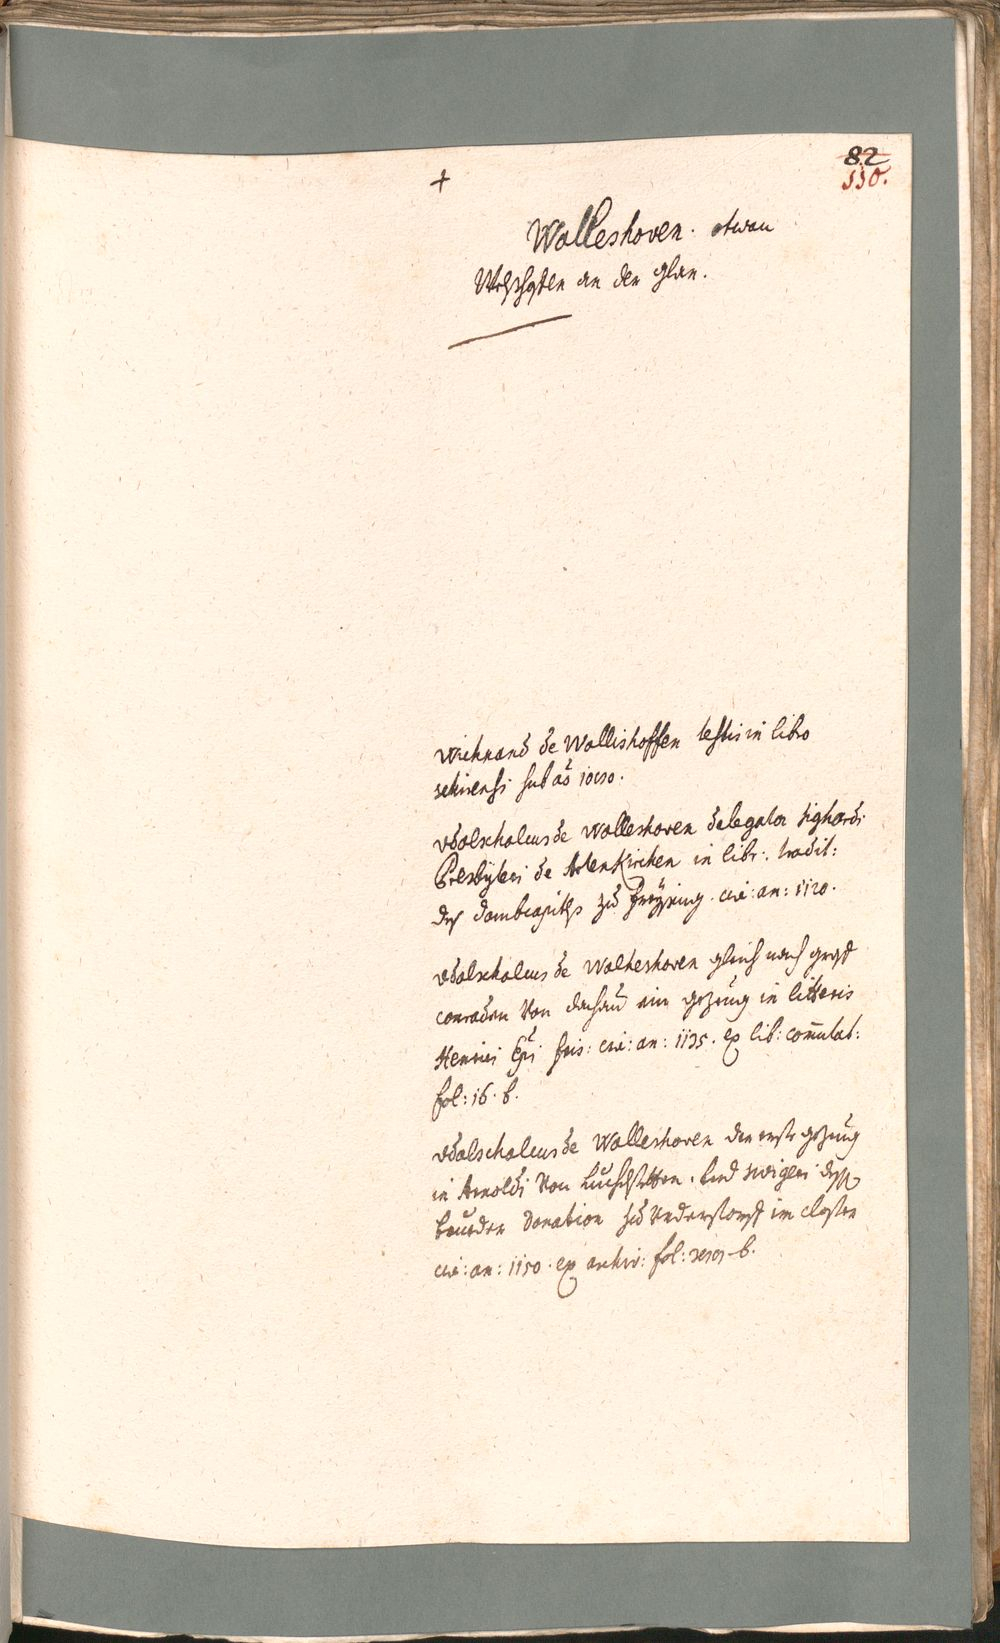 82
110.
+
Walleshoven. etwan
an der glan.
Wichnand de Wallishoffen testis in libro
schirensi sub aō
Vdalschalcus de Walleshoven delegator Sighardi
Presbyteri de AltenKirchen in libr: tradit:
des dombcapitls zu Freysing. circ: an: 1120.
Vdalschalcus de Walheshoven gleich nach graf
conraden von dachau ein gezeug in litteris
Henrici Epi fris: circ: an: 1135. ex lib: comutat:
fol: 16. b.
Vdalschalcus de Walleshoven der erste gezeug
in Arnoldi von
brueder donation zu Understorf im closter
circ: an: 1150. ex archiv: fol: b.